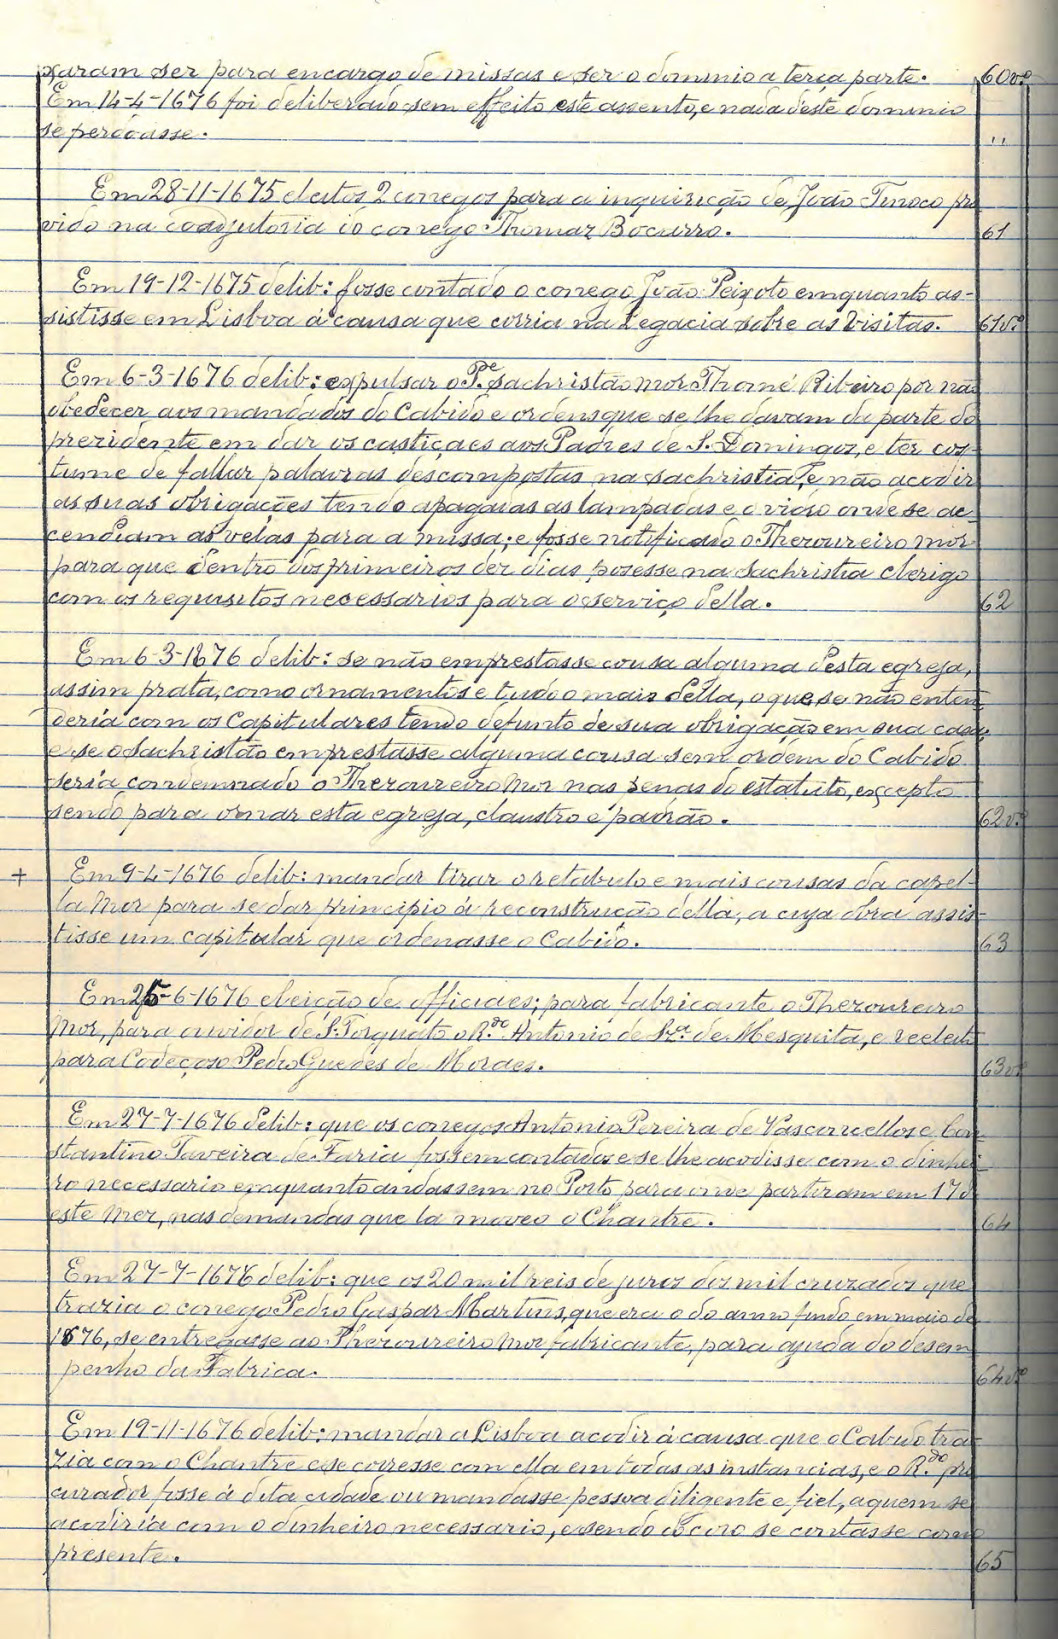 xaram ser para encargo de missas e ser o dominio a terça parte. 60vº
Em 14-4-1676 foi deliberado sem effeito este assento, e nada deste dominio
se perdoasse. "
Em 28-11-1675 eleitos 2 conegos para a inquirição de João Tinoco pro
vido na coadjutoria do conego Thomaz Bocarro. 61
Em 19-12-1675 delib: fosse contado o conego João Peixoto emquanto as-
sistisse em Lisboa á causa que corria na Legacia sobre as Visitas. 61vº
Em 6-3-1676 delib: expulsar o Pe. sachristão mor Thomé Ribeiro por não
obedecer aos mandados do Cabido e ordens que se lhe davam da parte do
prezidente em dar os castiçaes aos Padres de S. Domingos, e ter cos-
tume de fallar palavras descompostas na sachristia, e não acodir
as suas obrigações tendo apagadas as lampadas e o vidro onde se ac-
cendiam as velas para a missa; e fosse notificado o Thezoureiro mor
para que dentro dos primeiros dez dias pozesse na Sachristia clerigo
com os requisitos necessarios para o serviço della. 62
Em 6-3-1676 delib: se não emprestasse cousa alguma desta egreja,
assim prata, como ornamentos e tudo o mais della, o que se não enten
deria com os Capitulares tendo defunto de sua obrigação em sua casa,
e se o Sachristão emprestasse alguma cousa sem ordem do Cabido
seria condemnado o Thezoureiro Mor nas penas do estatuto, excepto
sendo para ornar esta egreja, claustro e padrão. 62vº
+ Em 9-4-1676 delib: mandar tirar o retabulo e mais cousas da capel-
la Mor para se dar principio á reconstrucção della, a cuja obra assis-
tisse um capitular que ordenasse o Cabido. 63
Em 25-6-1676 eleição de officiaes; para fabricante o Thezoureiro
Mor, para ouvidor de S. Torquato o R.do Antonio de de Mesquita, e reeleito
para Codeçoso Pedro Guedes de Moraes. 63vº
Em 27-7-1676 delib: que os conegos Antonio Pereira de Vasconcellos e Con
stantino Taveira de Faria fossem contados e se lhe acodisse com o dinhei
ro necessario emquanto andassem no Porto para onde partiram em 17 d
este Mez, nas demandas que la moveo o Chantre. 64
Em 27-7-1676 delib: que os 20 mil reis de juros dos mil cruzados que
trazia o conego Pedro Gaspar Martins, que era o do anno findo em maio de
1676, se entregasse ao Thezoureiro Mor fabricante, para ajuda do desem
penho da Fabrica. 64vº
Em 19-11-1676 delib: mandar a Lisboa acodir á causa que o Cabido tra
zia com o Chantre e se corresse com ella em todas as instancias, e o R.do pro
curador fosse á dita cidade ou mandasse pessoa diligente e fiel, a quem se
acodiria com o dinheiro necessario, e sendo do coro se contasse como
presente. 65